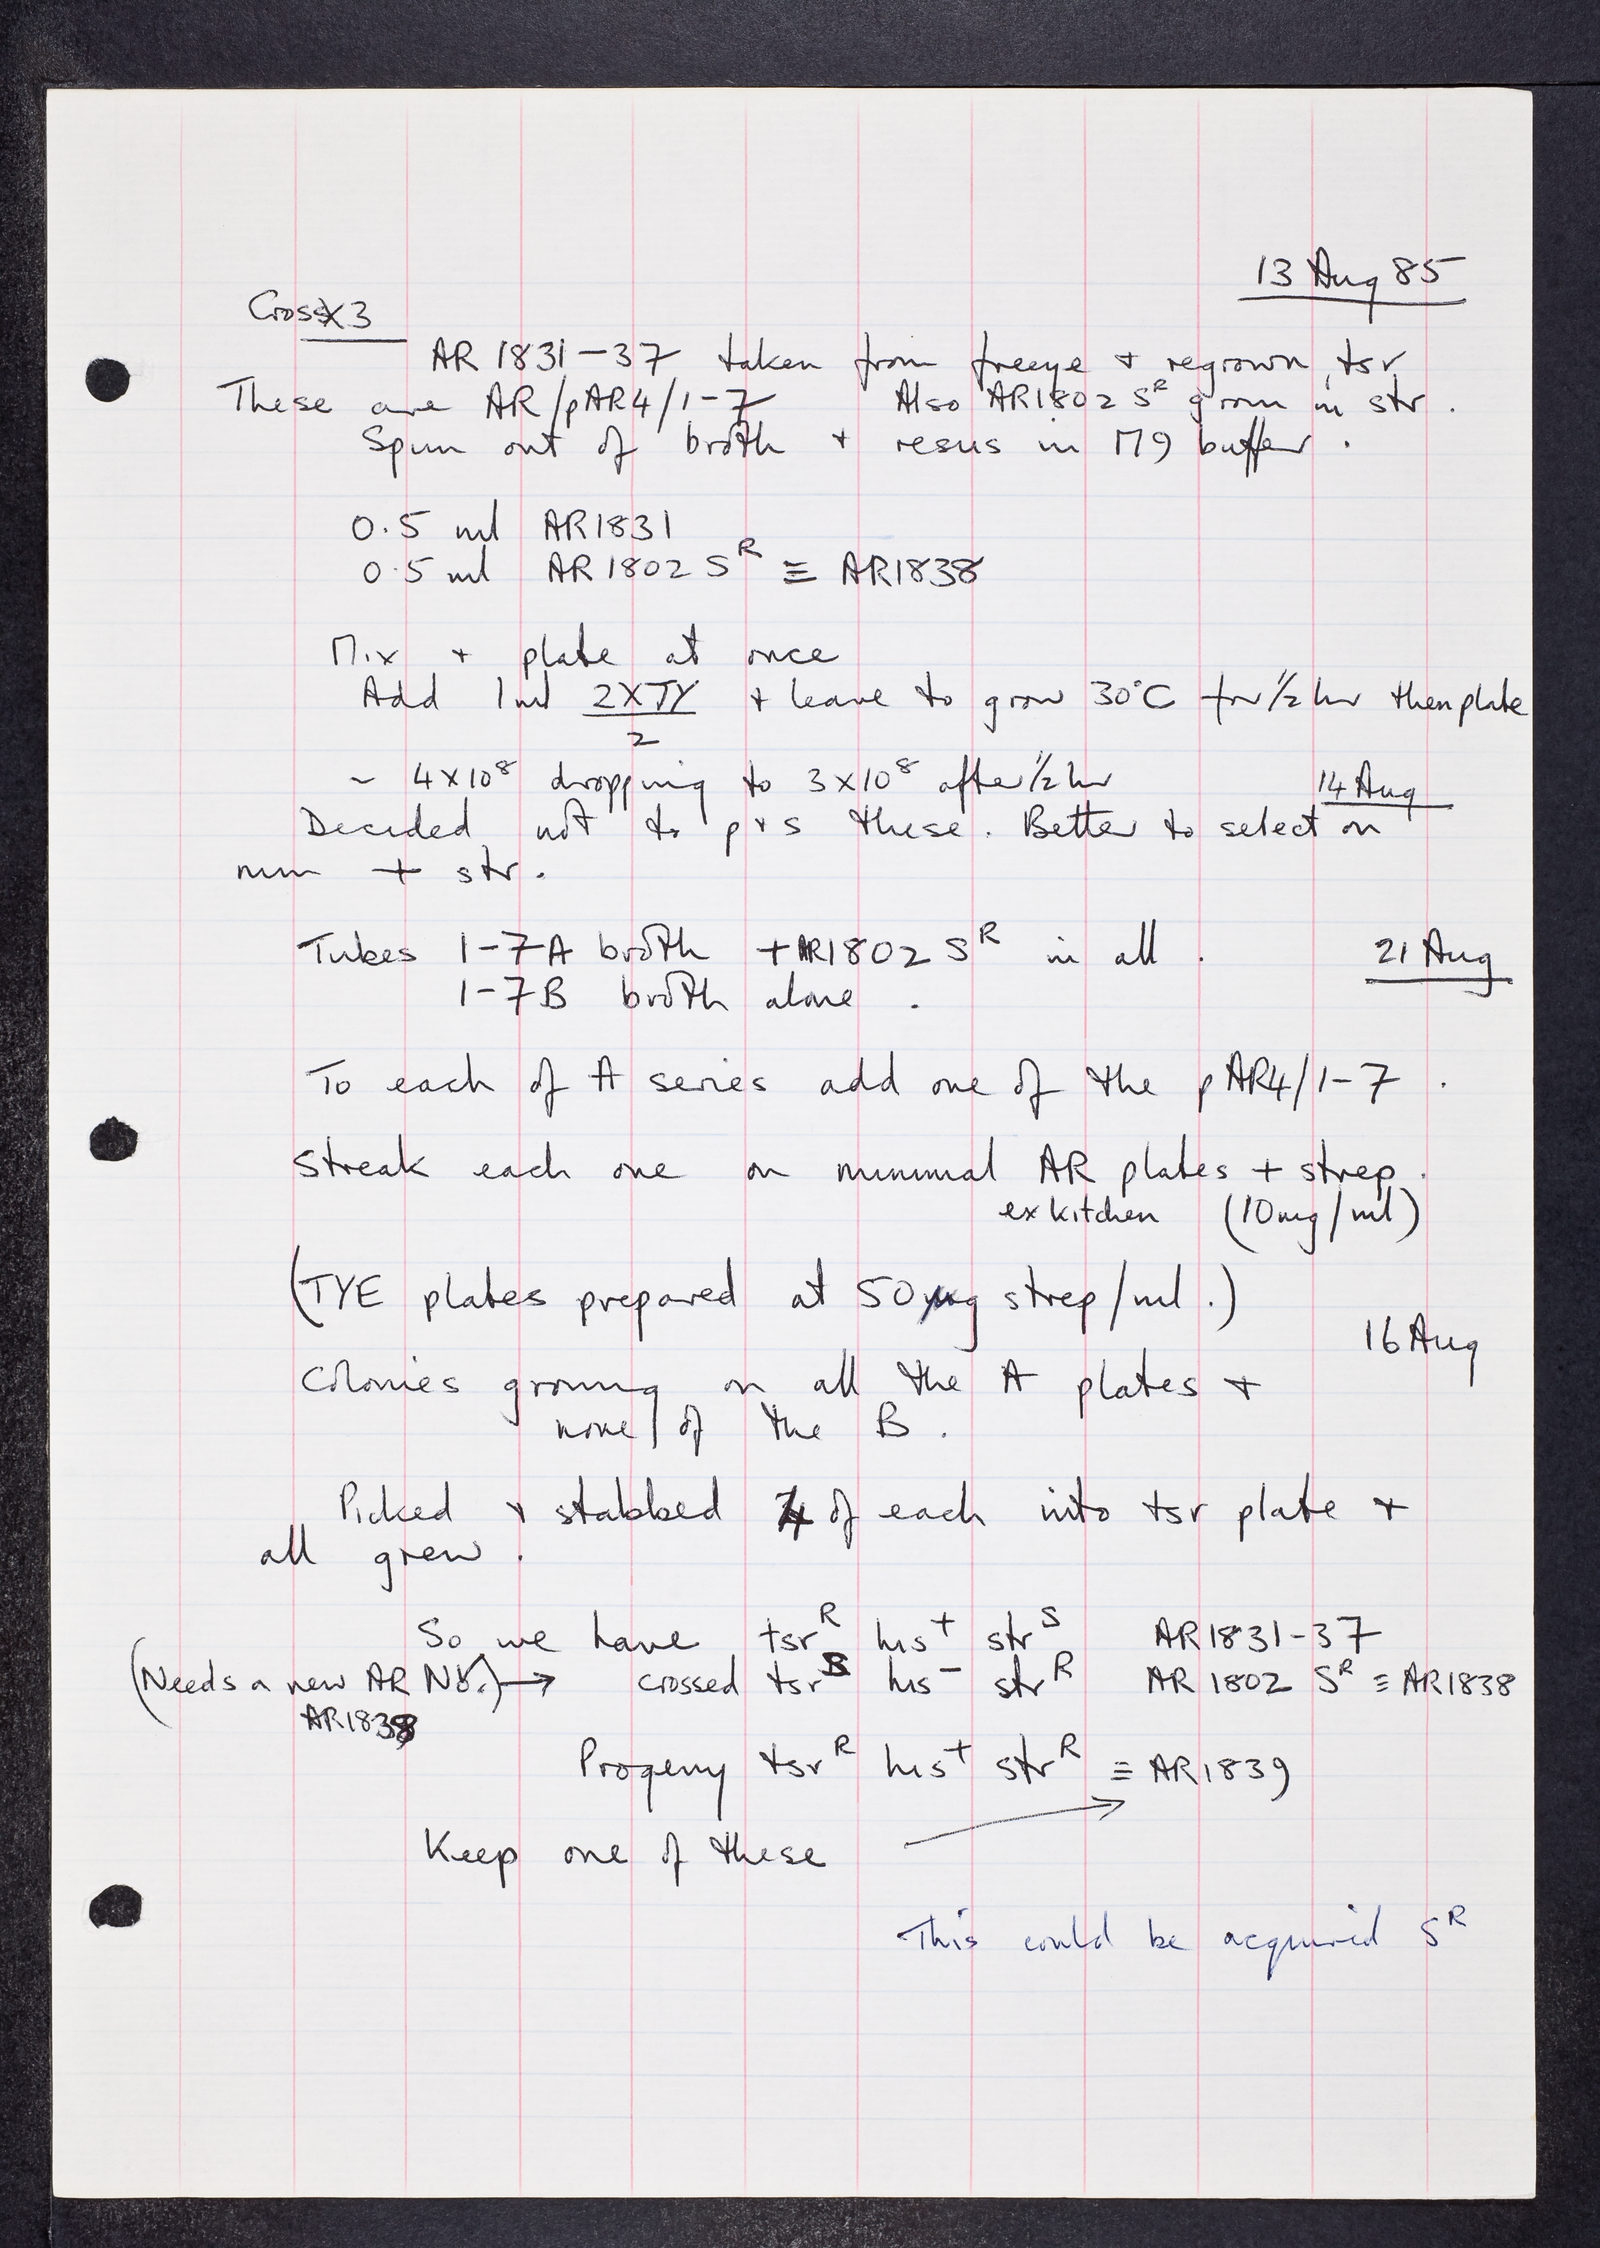 13 Aug 85
Cross X3
AR 1831-37 taken from freeze + regrown, tsr
These are AR/pAR4/1-7 Also AR1802 S^R grown in str.
Spun out of broth + resus in M9 buffer.
0.5 ml AR1831
0.5 ml AR1802 S^R ≡ AR1838
Mix + plate at once
Add 1ml 2XTY/2 + leave to grow 30°C for ½ hr then plate
~ 4x10^8 dropping to 3x10^8 after ½ hr
14 Aug
Decided not to p+s these. Better to select on
min + str.
Tubes 1-7A broth + AR1802 S^R in all. 21 Aug
1-7B broth alone.
To each of A series add one of the pAR4/1-7.
Streak each one on minimal AR plates + strep.
ex kitchen (10mg/ml)
(TYE plates prepared at 50µg strep/ml.)
16 Aug
Colonies growing on all the A plates +
none of the B.
Picked + stabbed 4 of each into tsr plate +
all grew.
So we have tsr^R his^+ str^S AR1831-37
(Needs a new AR No.) → crossed tsr^S his^- str^R AR 1802 S^R ≡ AR1838
AR1838
Progeny tsr^R his^+ str^R ≡ AR1839
Keep one of these →
This could be acquired S^R